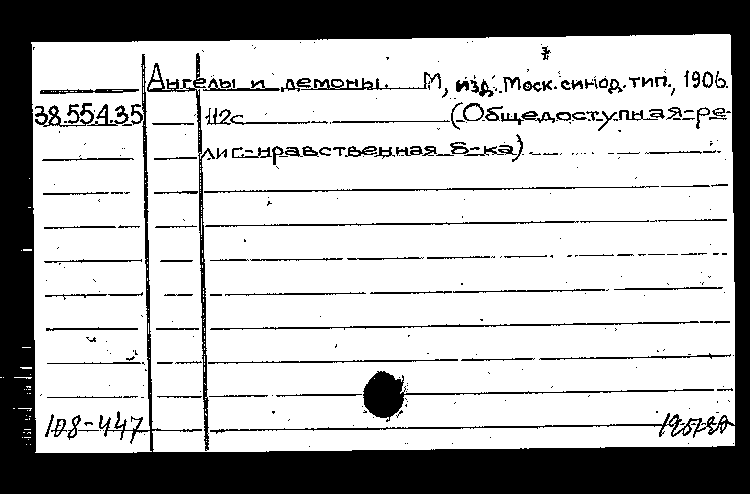 Ангелы и демоны. М, изд. Моск. синод. тип., 1906.
38.55.4.35 112с (Общедоступная ре-
лиг-нравственная б-ка)
108-447